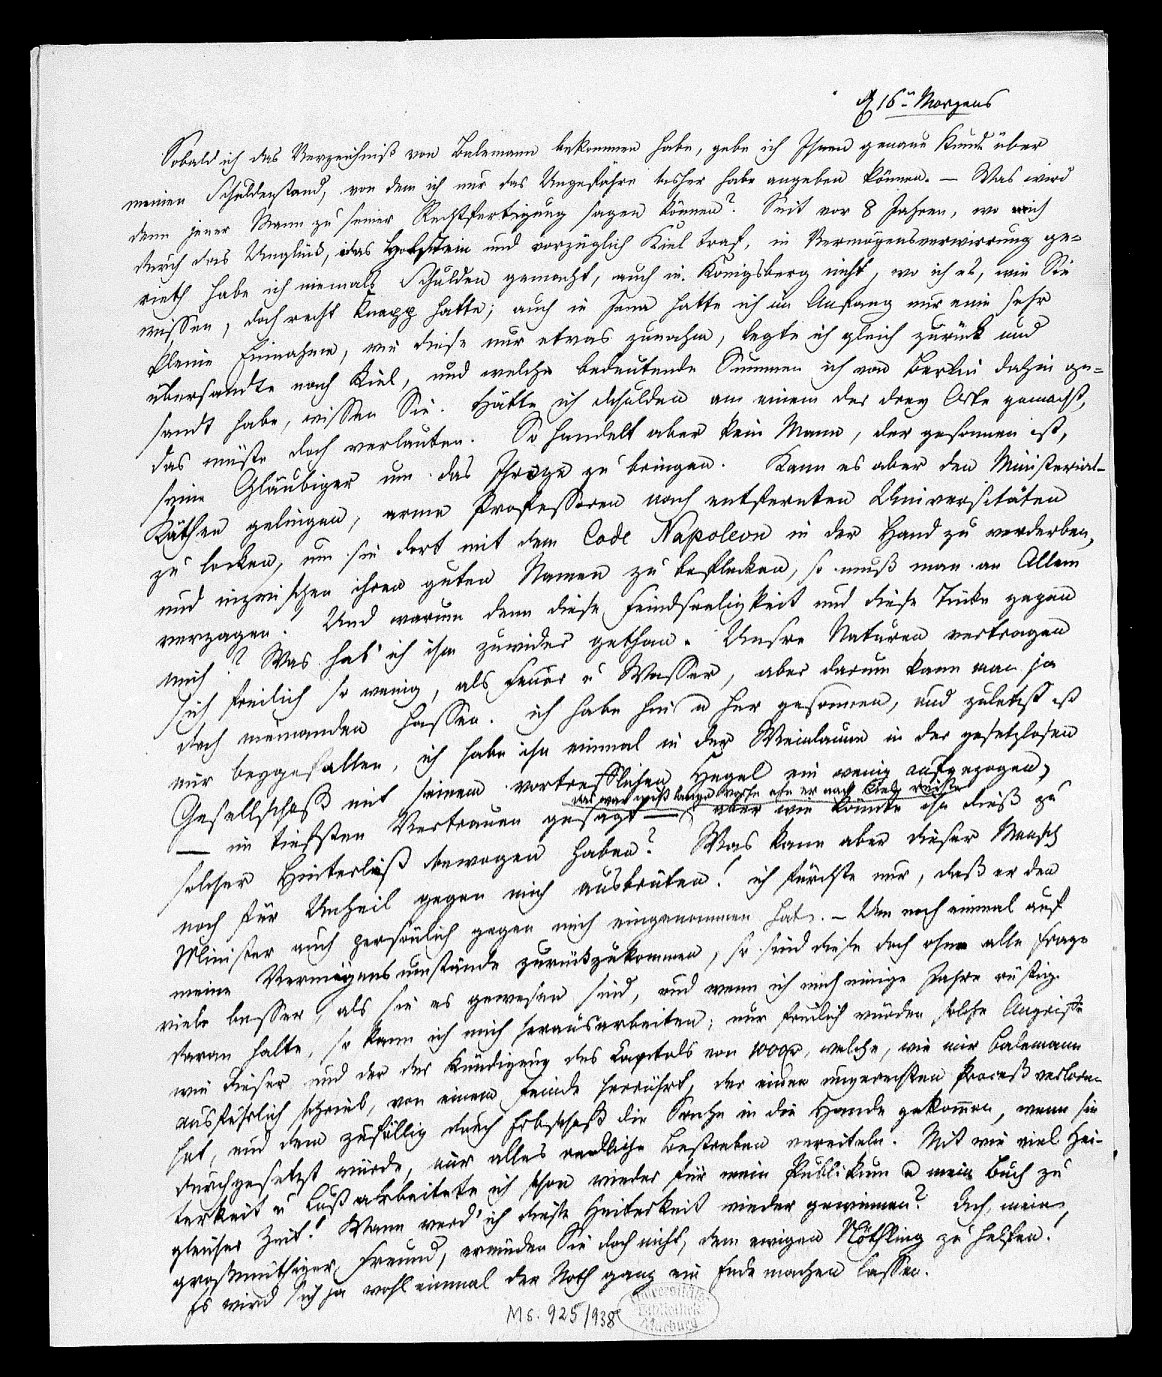 16ⁿ Morgens
Sobald ich das Verzeichniß von Balemann bekommen habe, gebe ich Ihnen genaue Kunde über
meinen Schuldenstand, von dem ich nur das Ungefähre bisher habe angeben können. — Was wird
denn jener Mann zu seiner Rechtfertigung sagen können? Seit vor 8 Jahren, wo mich
durch das Unglück, das Holstein und vorzüglich Kiel traf, in Vermögensverwirrung ge-
rieth habe ich niemals Schulden gemacht, auch in Königsberg nicht, wo ich es, wie Sie
wissen, doch recht knapp hatte; auch in Jena hatte ich im Anfang nur eine sehr
kleine Einnahme, wie diese nur etwas zunahm, legte ich gleich zurück und
übersandte nach Kiel, und welche bedeutende Summen ich von Berlin dahin ge-
sandt habe, wissen Sie. Hätte ich Schulden an einem der drey Orte gemacht,
das müßte doch verlauten. So handelt aber kein Mann, der gesonnen ist,
seine Gläubiger um das Ihrige zu bringen. Kann es aber den Ministerial-
Räthen gelingen, arme Professoren nach entfernten Universitäten
zu locken, um sie dort mit dem Code Napoleon in der Hand zu verderben,
und inzwischen ihren guten Namen zu beflecken, so muß man an Allem
verzagen. Und warum denn diese Feindseeligkeit und diese Tücke gegen
mich? Was hab' ich ihm zuwider gethan. Unsre Naturen vertragen
sich freilich so wenig, als Feuer u Wasser, aber darum kann man ja
doch niemanden hassen. ich habe hin u her gesonnen, und zuletzt ist
mir beygefallen, ich habe ihn einmal in der Weinlaune in der gesetzlosen
Gesellschaft mit seinem vortrefflichen Hegel ein wenig aufgezogen,
das war gewiß lange vorher ehe er nach reiste
— im tiefsten Vertrauen gesagt — aber wie könnte ihn dieß zu
solcher Hinterlist bewogen haben? Was kann aber dieser Mensch
noch für Unheil gegen mich ausbrüten! ich fürchte nur, daß er den
Minister auch persönlich gegen mich eingenommen hat. — Um noch einmal auf
meine Vermögensumstände zurückzukommen, so sind diese doch ohne alle Frage
viele besser, als sie es gewesen sind, und wenn ich mich einige Jahre rüstig
daran halte, so kann ich mich herausarbeiten; nur freilich würden solche Angriffe
wie dieser und der der Kündigung des Capitals von 1000, welche, wie mir Balemann
ausführlich schrieb, von einem Feinde herrührt, der einen ungerechten Proceß verloren
hat, und dem zufällig durch Erbschaft die Sache in die Hände gekommen, wenn sie
durchgesetzt würde, nur alles redliche Bestreben vereiteln. Mit wie viel Hei-
terkeit u Lust arbeitete ich schon wieder für mein Publikum u mein Buch zu
gleicher Zeit! Wann werd' ich diese Heiterkeit wieder gewinnen? Ach, mein
großmüthiger Freund, ermüden Sie doch nicht, dem ewigen Nöthling zu helfen!
Es wird sich ja wohl einmal der Noth ganz ein Ende machen lassen.
Ms. 925/938
Universitäts
Bibliothek
Marburg